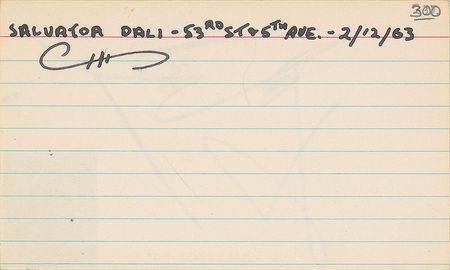 300
SALVATOR DALI - 53RD ST & 5TH AVE. - 2/12/63